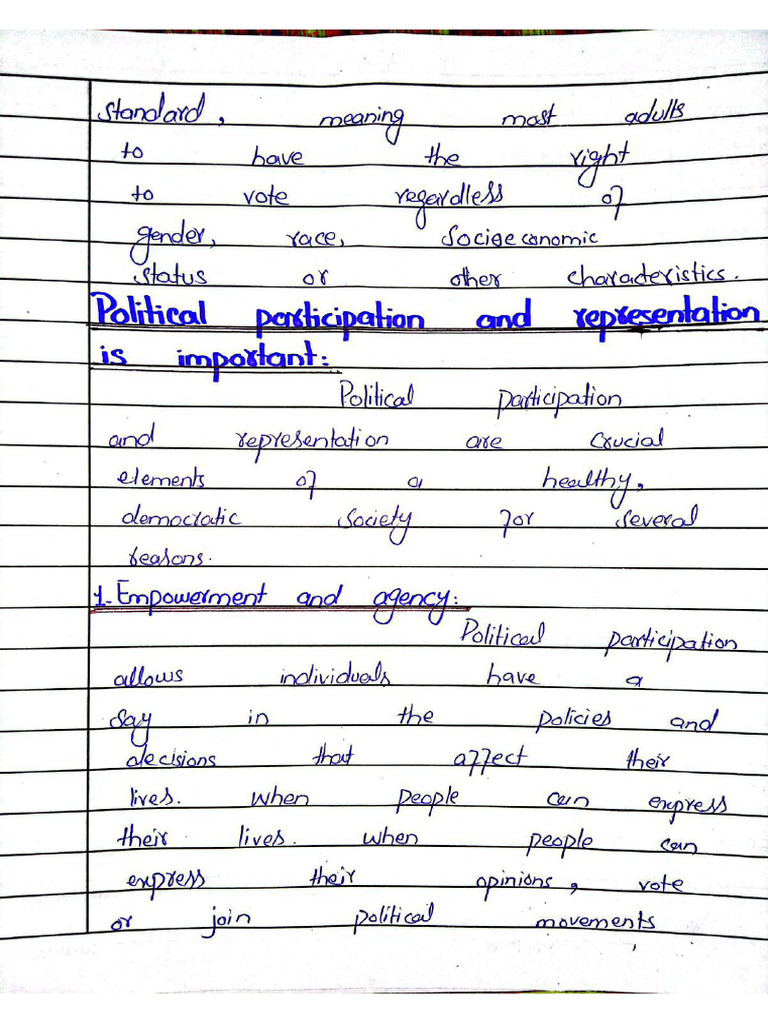 standard, meaning most adults
to have the right
to vote regardless of
gender, race, Socioeconomic
status or other characteristics.
Political participation and representation
is important:
Political participation
and representation are crucial
elements of a healthy,
democratic society for several
reasons.
1. Empowerment and agency:
Political participation
allows individuals have a
say in the policies and
decisions that affect their
lives. When people can express
their lives. when people can
express their opinions, vote
or join political movements